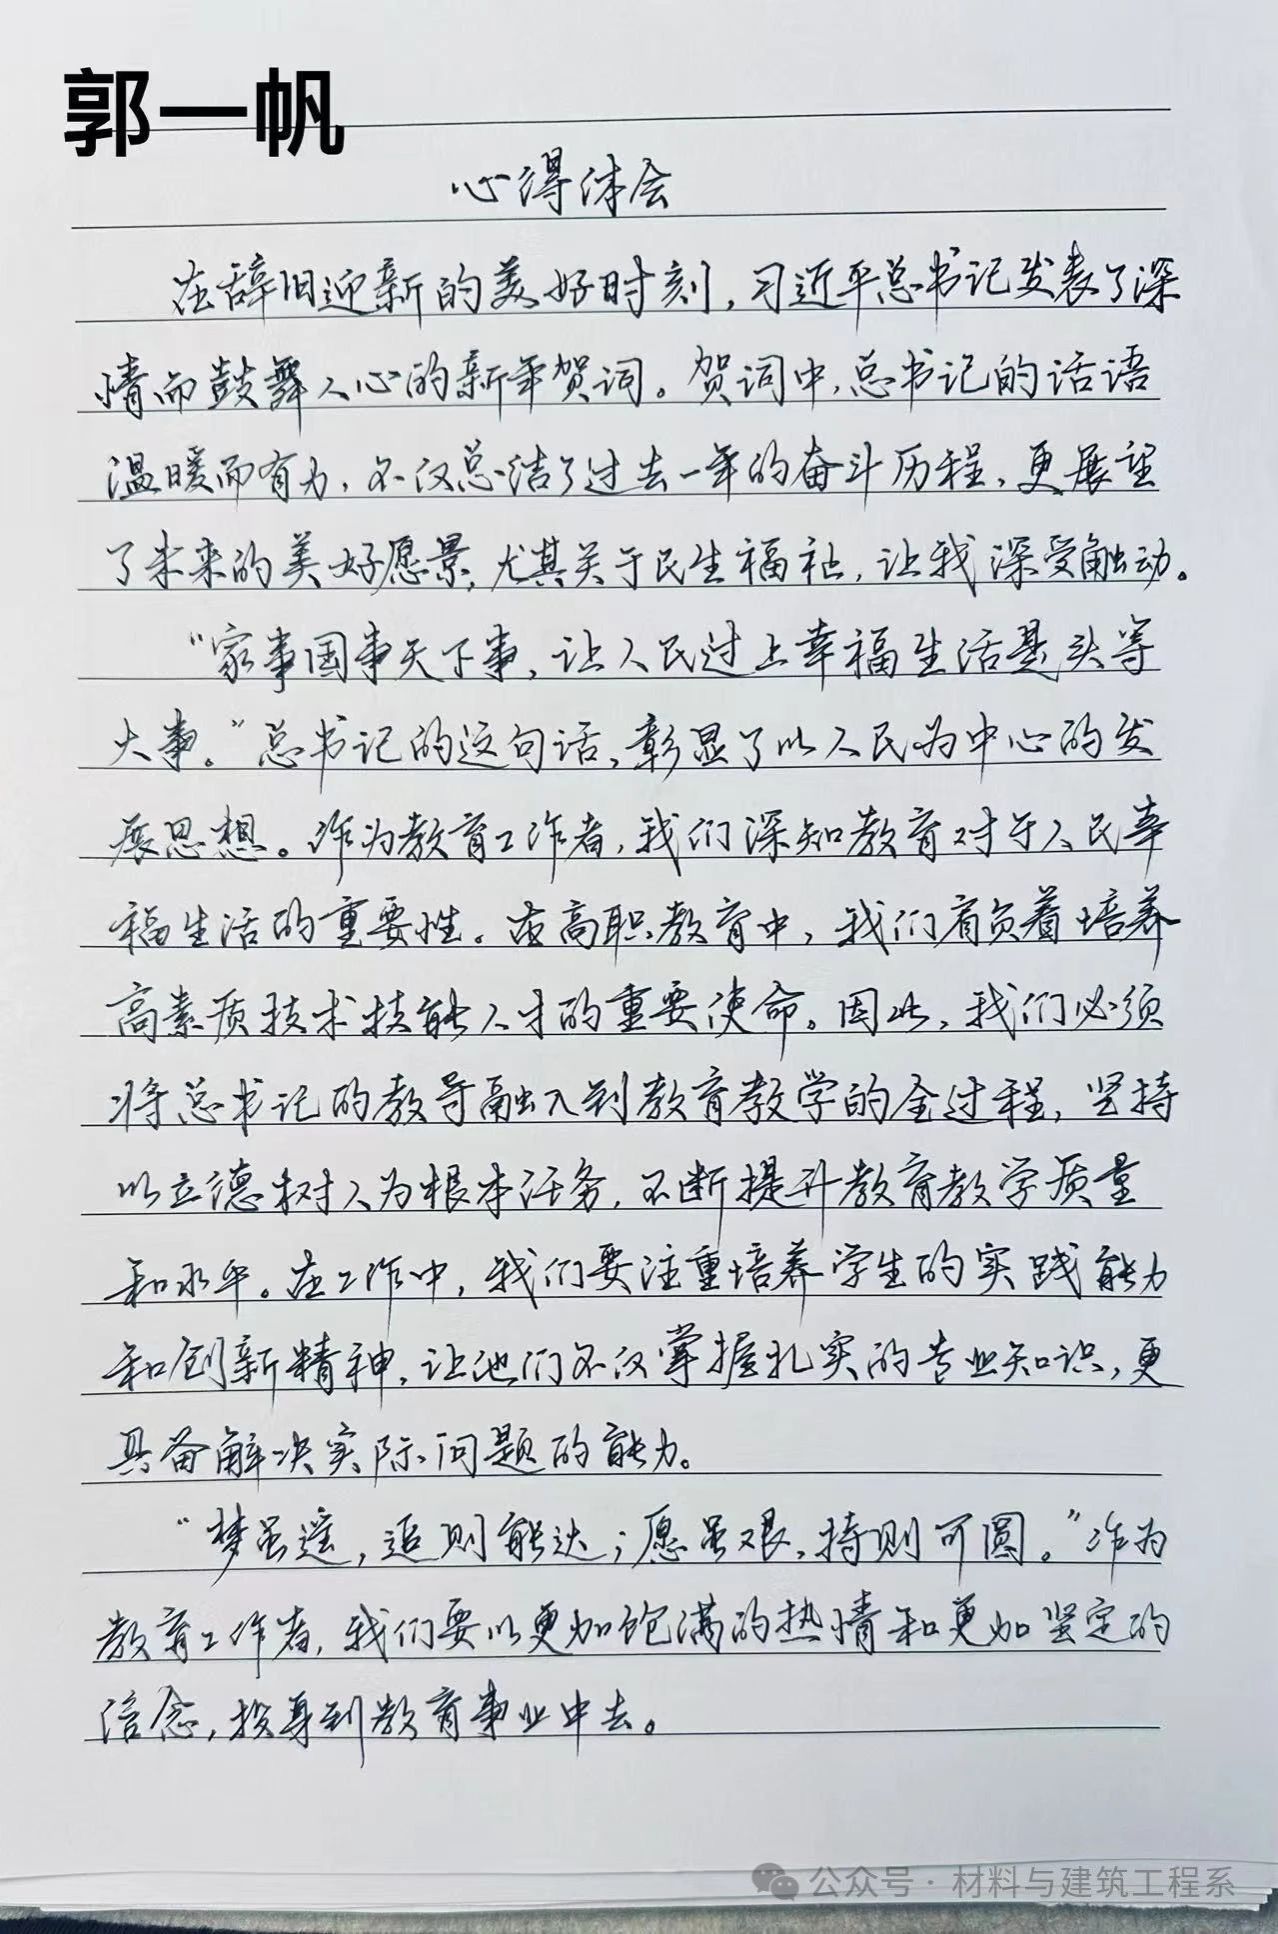 郭一帆
心得体会
在辞旧迎新的美好时刻，习近平总书记发表了深
情而鼓舞人心的新年贺词。贺词中，总书记的话语
温暖而有力，不仅总结了过去一年的奋斗历程，更展望
了未来的美好愿景，尤其关于民生福祉，让我深受触动。
“家事国事天下事，让人民过上幸福生活是头等
大事。”总书记的这句话，彰显了以人民为中心的发
展思想。作为教育工作者，我们深知教育对于人民幸
福生活的重要性。在高职教育中，我们肩负着培养
高素质技术技能人才的重要使命。因此，我们必须
将总书记的教导融入到教育教学的全过程，坚持
以立德树人为根本任务，不断提升教育教学质量
和水平。在工作中，我们要注重培养学生的实践能力
和创新精神，让他们不仅掌握扎实的专业知识，更
具备解决实际问题的能力。
“梦虽遥，追则能达；愿虽艰，持则可圆。”作为
教育工作者，我们要以更加饱满的热情和更加坚定的
信念，投身到教育事业中去。
公众号·材料与建筑工程系